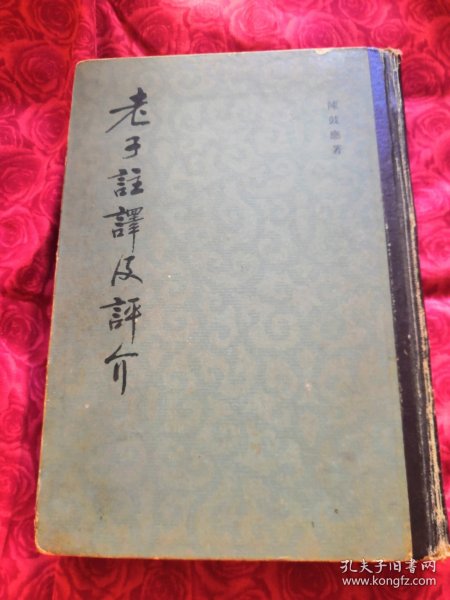 陳鼓應著
老子註譯及評介
孔夫子旧书网
www.kongfz.com